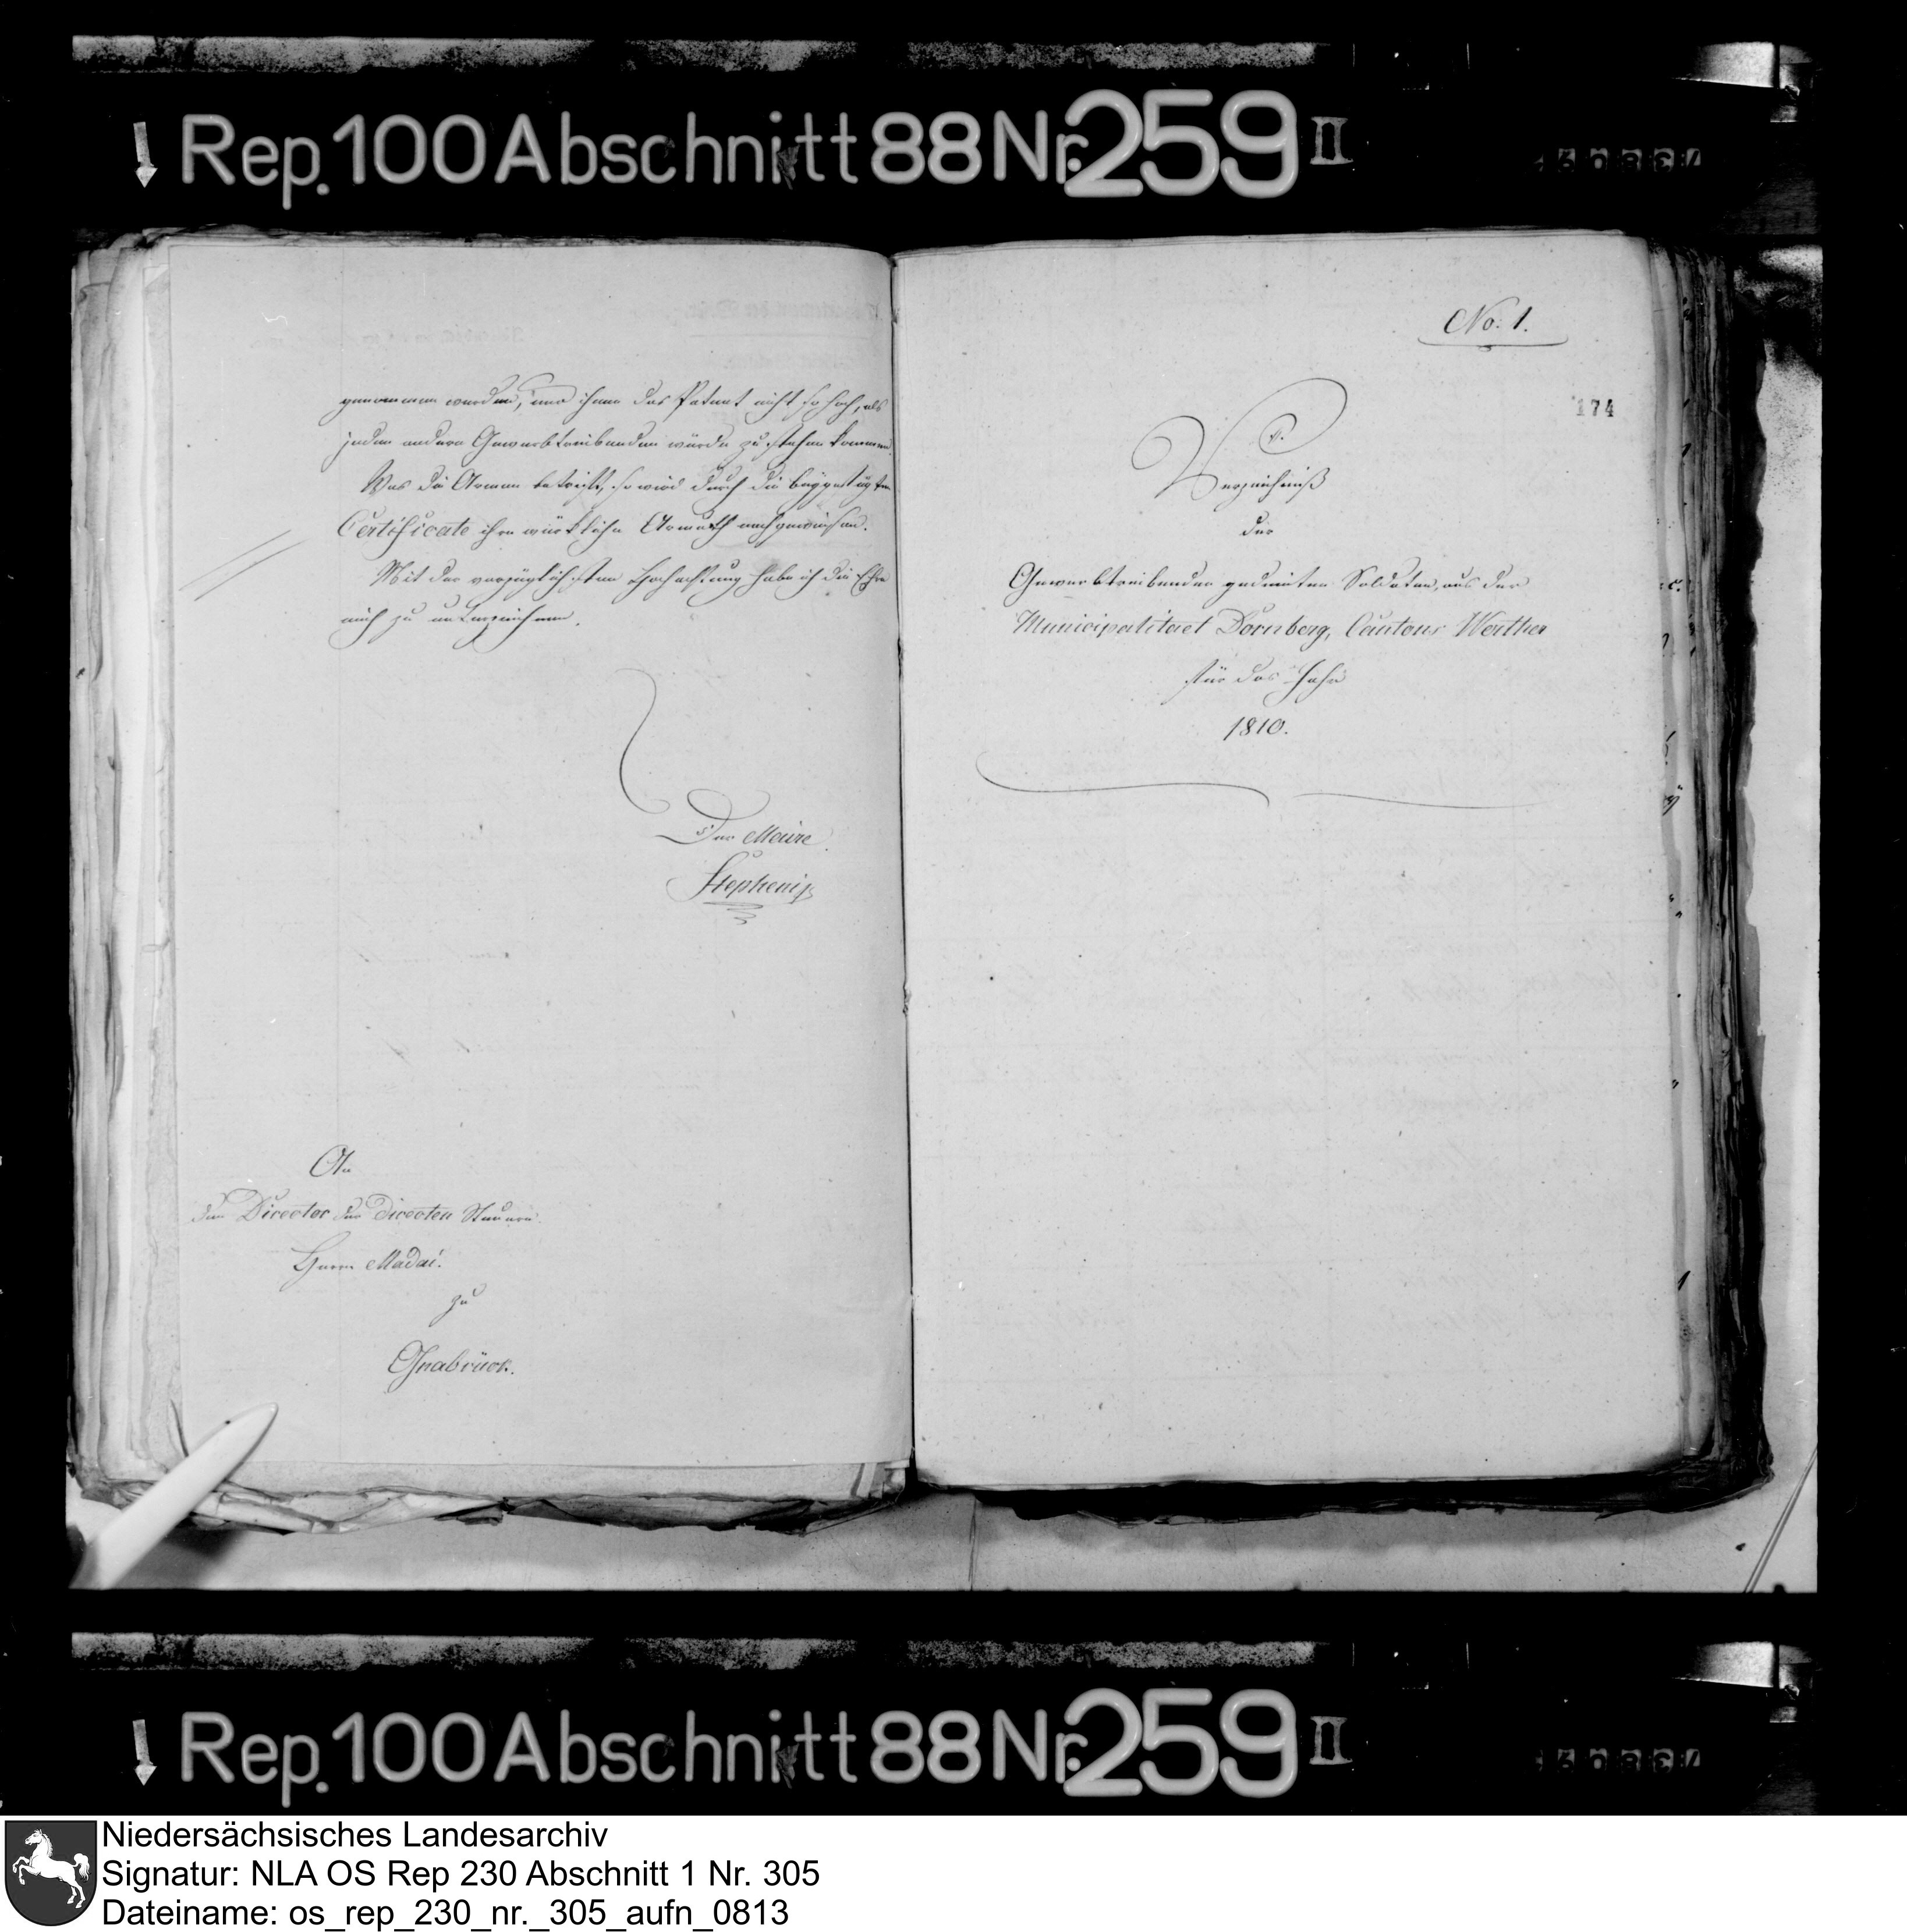 Rep. 100 Abschnitt 88 Nr. 259 II
genommen werden, und ihnen das Patent nicht so hoch, als
jeden andern Gewerbtreibenden würde zu stehen kommen.
Was die Armen betrifft, so wird durch die beygefügten
Certificate ihre würkliche Armuth nachgewiesen.
Mit der vorzüglichsten Hochachtung habe ich die Ehre
mich zu unterzeichnen.
Der Maire
An
den Director der Directen Steuern
Herrn Madai.
zu
Osnabrück.
No: 1.
174
Verzeichniß
der
Gewerbtreibenden gedienten Soldaten, aus der
Municipalitaet Dornberg, Cantons Werther
für das Jahr
1810.
Rep. 100 Abschnitt 88 Nr. 259 II
Niedersächsisches Landesarchiv
Signatur: NLA OS Rep 230 Abschnitt 1 Nr. 305
Dateiname: os_rep_230_nr._305_aufn_0813